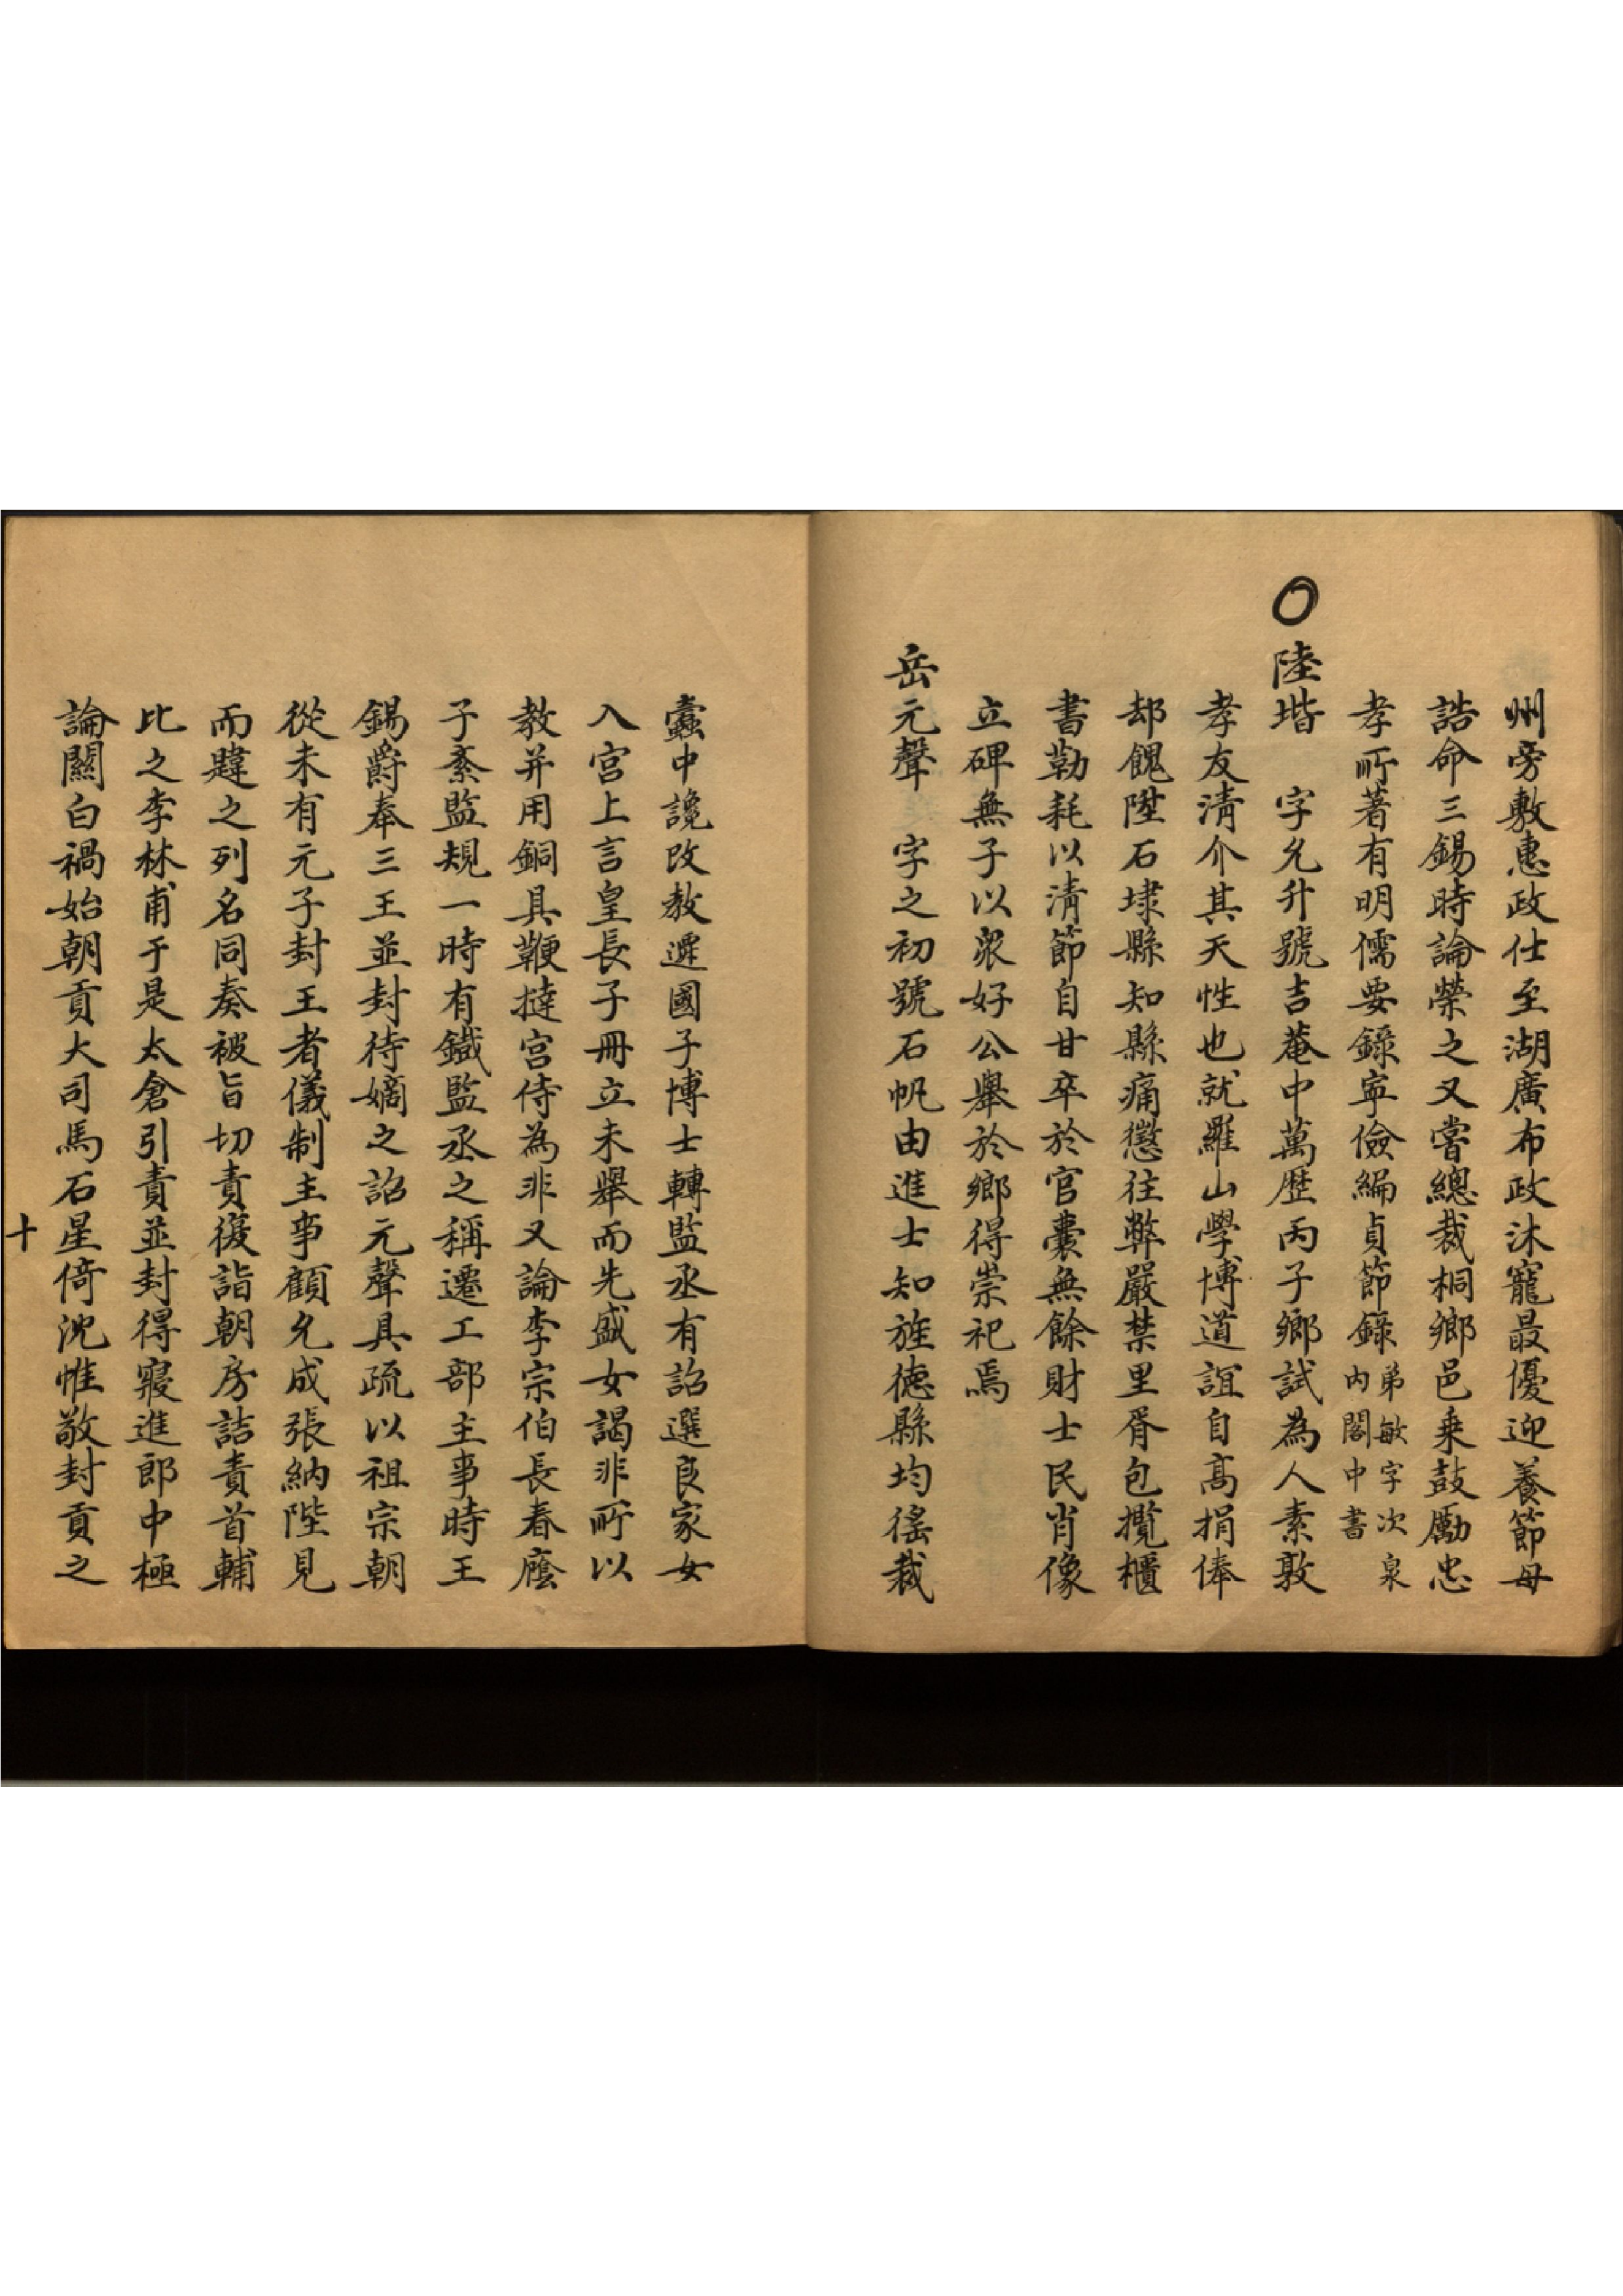 州旁敷惠政仕至湖廣布政沐寵最優迎養節母
誥命三錫時論榮之又嘗總裁桐鄉邑乗鼓勵忠
孝所著有明儒要錄寜儉編貞節錄弟敏字次泉內閣中書
〇陸堦 字允升號吉菴中萬歷丙子鄉試為人素敦
孝友淸介其天性也就羅山學博道誼自高捐俸
却餽陞石埭縣知縣痛懲往弊嚴禁里胥包攬櫃
書勒耗以淸節自甘卒於官囊無餘財士民肖像
立碑無子以衆好公舉於鄉得崇祀焉
岳元聲 字之初號石帆由進士知旌德縣均徭裁
蠹中讒改教遷國子博士轉監丞有詔選良家女
入宮上言皇長子冊立未舉而先盛女謁非所以
教并用銅具鞭撻宮侍為非又論李宗伯長春廕
子紊監規一時有鐵監丞之稱遷工部主事時王
錫爵奉三王並封待嫡之詔元聲具疏以祖宗朝
從未有元子封王者儀制主事顧允成張納陛見
而韙之列名同奏被旨切責復詣朝房詰責首輔
比之李林甫于是太倉引責並封得寢進郎中極
論關白禍始朝貢大司馬石星倚沈惟敬封貢之
十